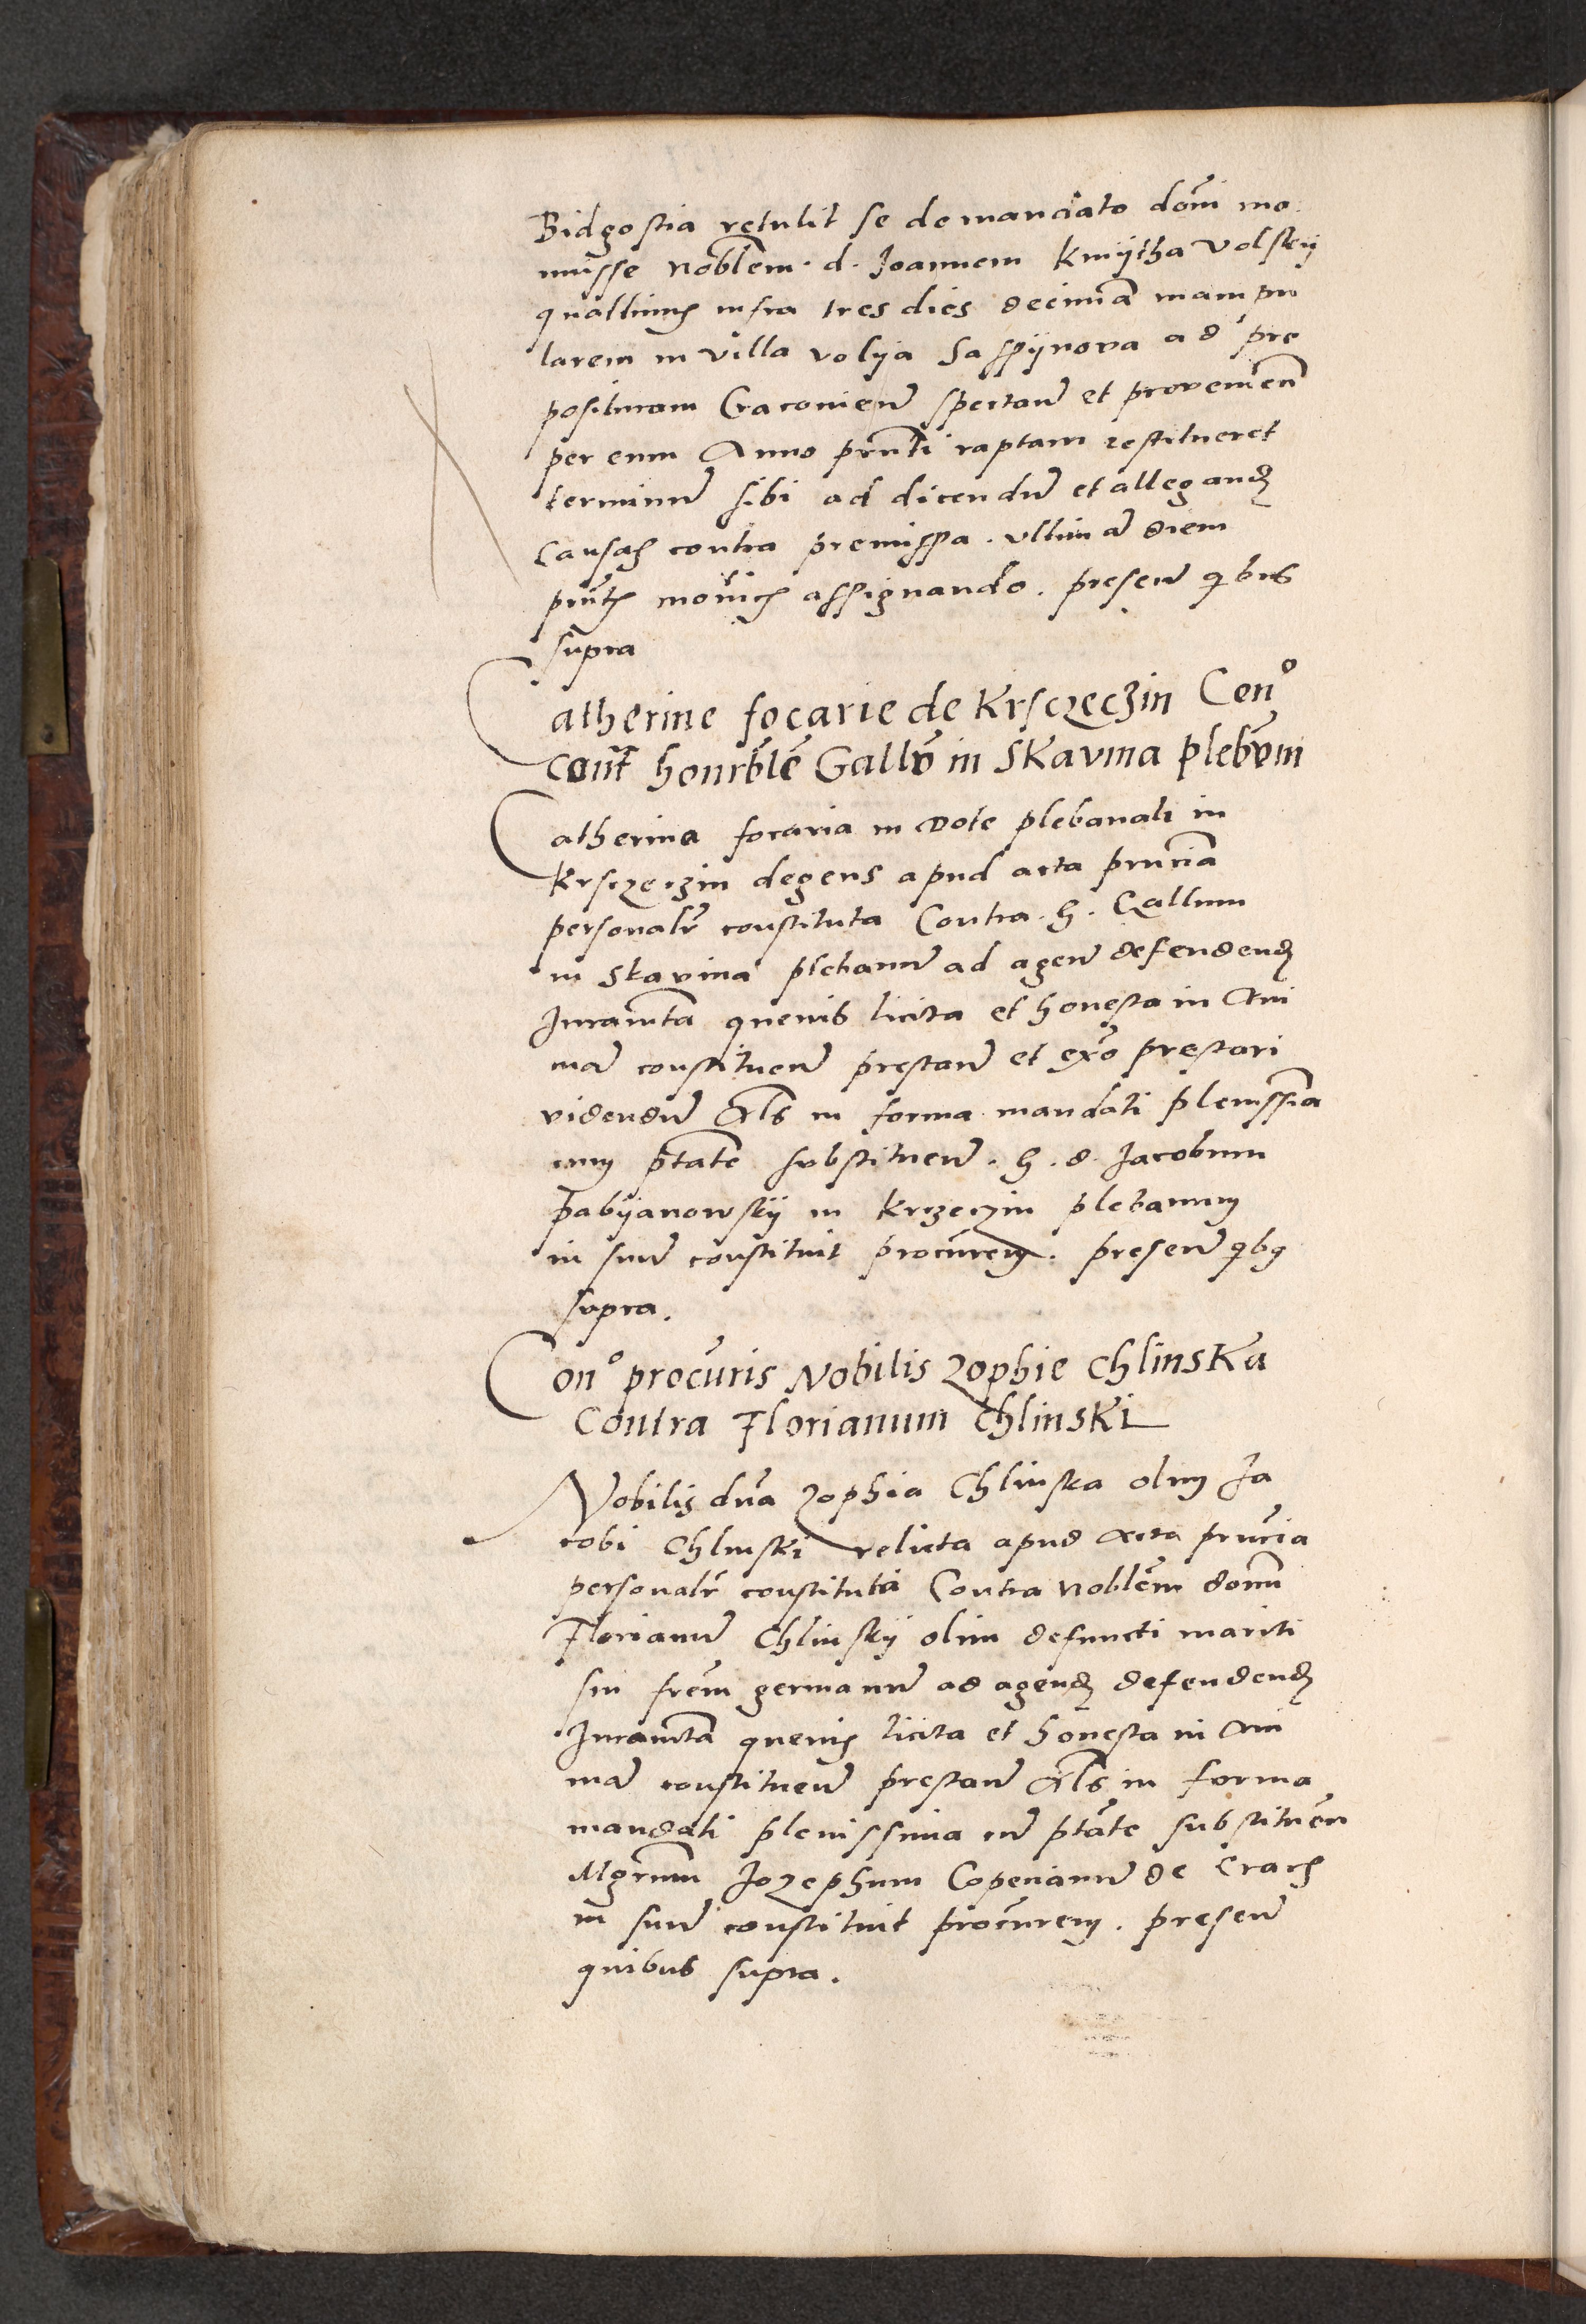 Bidgostia retulit se de mandato dom̃i mo
nuisse Nobl̃em. d. Joannem Kmÿtha Volskÿ
quatt̃inus infra tres dies decimã manipu
larem in villa volÿa Sassÿnova ad pre
posituram Cracovieñ spectañ et provenieñ
per eum Anno prñti raptam restitueret
terminũ sibi ad dicendũ et allegand̃
Causas contra premissa. ultimã diem
prñtis moñis assignando. preseñ qbus
supra
Catherine focarie de Krsczeczin Con°
Cont̃ honrbl̃e Gallũ in Skavina plebam̃
Catherina focaria in Dote plebanali in
Krsczeczin degens apud acta prñcia
personalr̃ constituta Contra. h. Gallum
in Skavina plebanũ ad ageñ defendend̃
Juram̃ta quevis licita et honesta in Ani
mã constitueñ prestañ et ex° prestari
videndũ Al̃s in forma mandati plenissĩa
cum ptãte substitueñ. h. d. Jacobum
pabÿanowskÿ in Krzeczin plebanum
in suũ constituit procũrem. preseñ qbus
supra.
Con° procũris Nobilis Zophie Chlinska
Contra Florianum Chlinski
Nobilis dña Zophia Chlinska olim Ja
cobi Chlinski relicta apud Acta prñcia
personalr̃ constituta Contra Nobl̃em domĩ
Florianũ Chlinskÿ olim defuncti mariti
sui frẽm germanũ ad agend̃ defendend̃
Juram̃ta quevis licita et honesta in Ani
mã constitueñ prestañ Al̃s in forma
mandati plenissima cũ ptãte substitueñ
Mgr̃um Jozephum Copecianũ de Crac̃
in suũ constituit procũrem. preseñ
quibus supra.